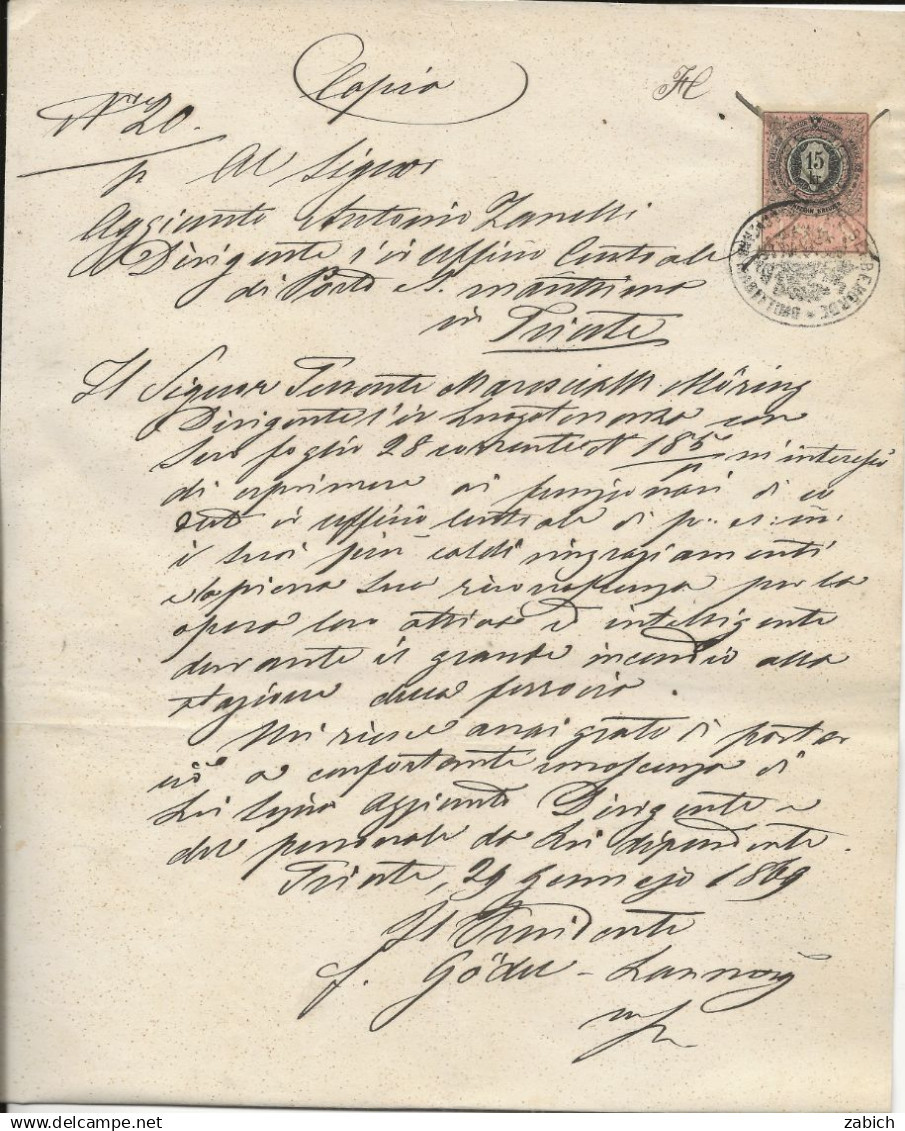 Copia
Nro 20.
p
Al Signor
Aggiunto Antonio Zanelli
Dirigente l'i r Uffino Centrale
di Porto S. marittimo
in Trieste
Il Signor Tenente Maresciallo Möring
Dirigente l'i r Luogotenenza con
Suo foglio 28 corrente N 185 m'interessò
p
di esprimere ai funzionari di
ir Uffino Centrale di p. s. m.
i suoi più caldi ringraziamenti
e la piena sua riconoscenza per la
opera loro attiva ed intelligente
durante il grande incendio alla
stazione della ferrovia.
Mi riesce assai grato di portar
ciò a confortante conoscenza di
Lei Signor Aggiunto Dirigente e
del personale da Lei dipendente.
Trieste, 29 Gennajo 1869
Il Presidente
f. Gödel-Lannoy
mp
15
kr
BEHÖRDE
zabich